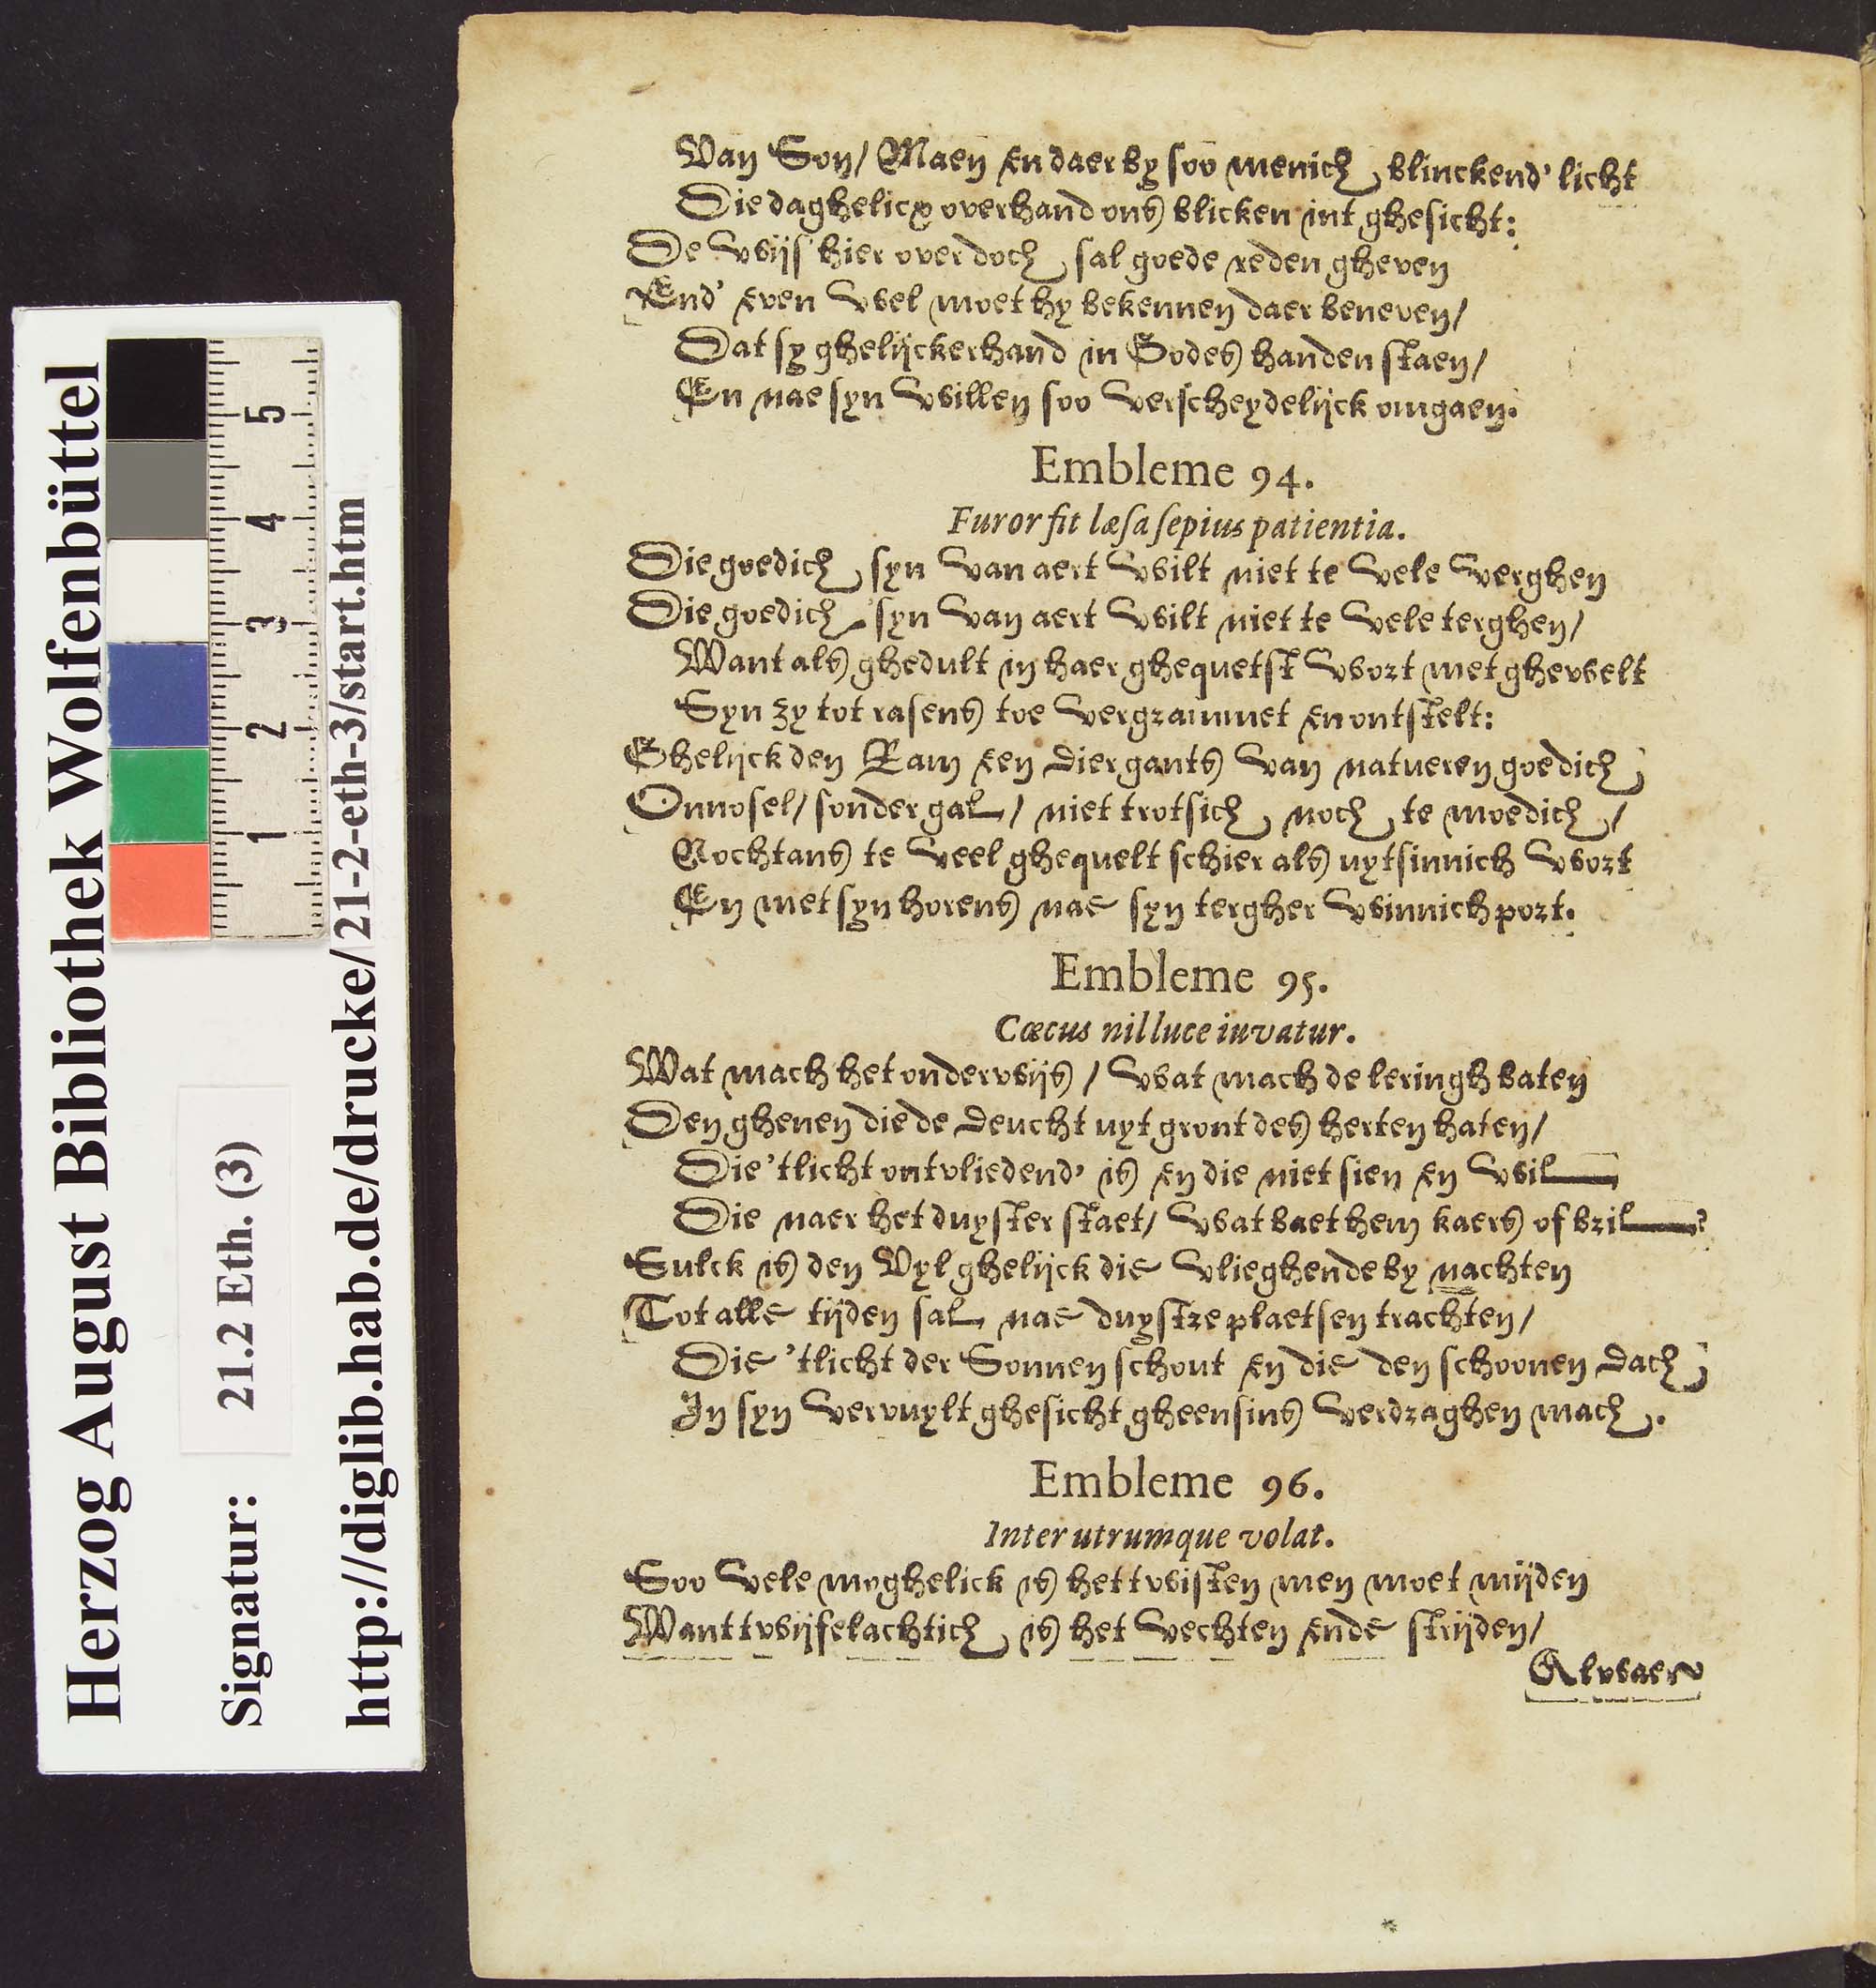 Van Son/ Maen en daer by soo menich blinckend' licht
Die daghelicx overhand ons blicken int ghesicht:
De wijs' hier over doch sal goede reden gheven
End' even wel moet hy bekennen daer beneven/
Dat sy ghelijckerhand in Godes handen staen/
En nae syn willen soo verscheydelijck omgaen.
Embleme 94.
Furor fit læsa sepius patientia.
Die goedich syn van aert wilt niet te vele verghen
Die goedich syn van aert wilt niet te vele terghen/
Want als ghedult in haer ghequetst wort met ghewelt
Syn zy tot rasens toe vergrammet en ontstelt:
Ghelijck den Ram een dier gants van natueren goedich
Onnosel/ sonder gal/ niet trotsich noch te moedich/
Nochtans te veel ghequelt schier als uytsinnich wort
En met syn horens nae syn tergher winnich port.
Embleme 95.
Cæcus nil luce iuvatur.
Wat mach het onderwijs/ wat mach de leringh baten
Den ghenen die de deucht uyt gront des herten haten/
Die 'tlicht ontvliedend' is en die niet sien en wil
Die naer het duyster staet/ wat baet hem kaers of bril?
Sulck is den Vyl ghelijck die vlieghende by nachten
Tot alle tijden sal nae duystre plaetsen trachten/
Die 'tlicht der Sonnen schout en die den schoonen dach
In syn vervuylt ghesicht gheensins verdraghen mach.
Embleme 96.
Inter utrumque volat.
Soo vele moghelick is het twisten men moet mijden
Want twijfelachtich is het vechten ende strijden/
Alwaer
Herzog August Bibliothek Wolfenbüttel
Signatur: 21.2 Eth. (3)
http://diglib.hab.de/drucke/21-2-eth-3/start.htm
1 2 3 4 5